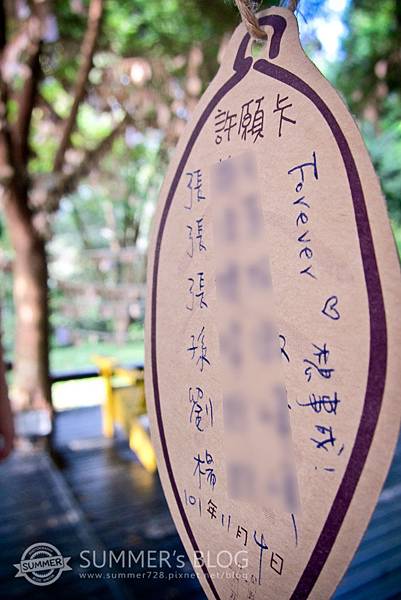 許願卡
張
張
張
孫
劉
楊
101年11月4日
Forever ♡ 想事成!
SUMMER
SUMMER's BLOG
www.summer728.pixnet.net/blog